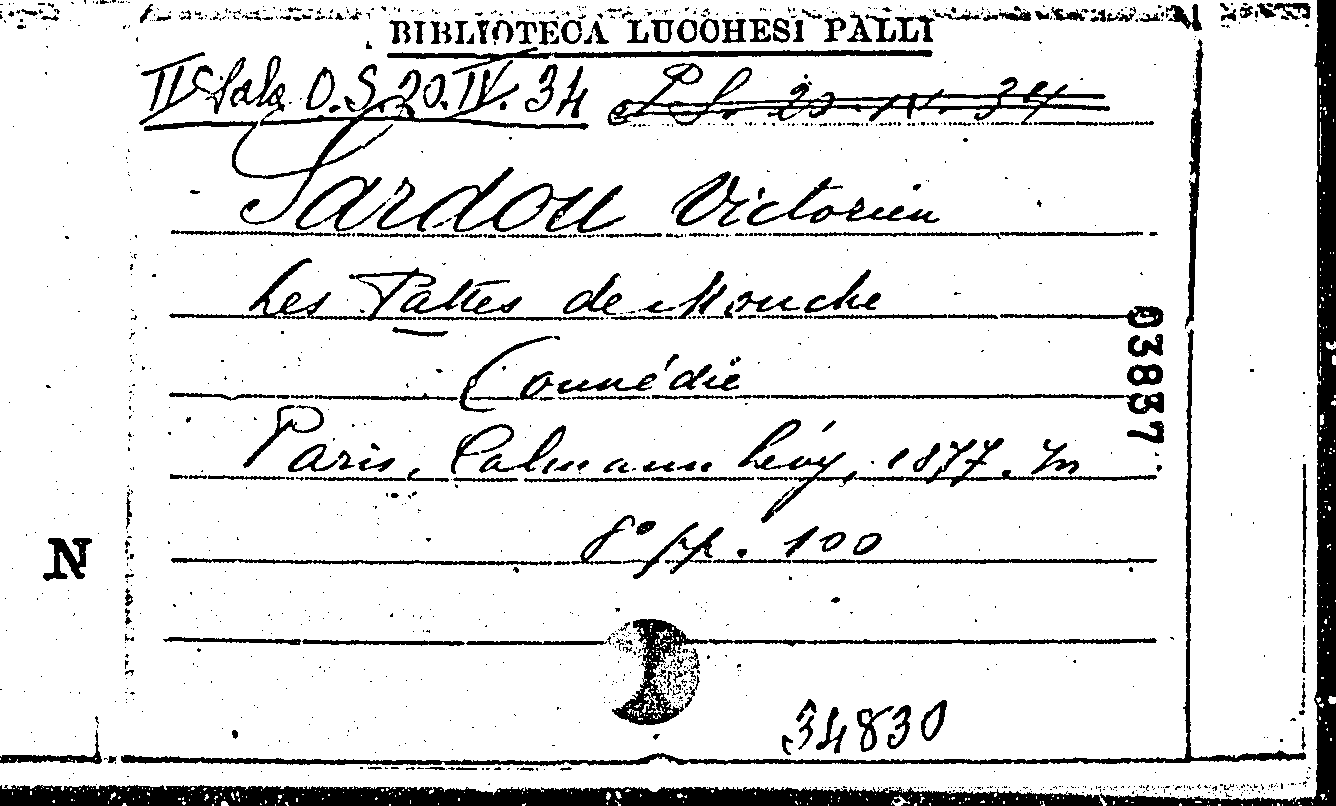 BIBLIOTECA LUCCHESI PALLI
II Sala O.S.20.IV.34 P.S. 20.IV.34
Sardou Victorien
Les Pattes de Mouche
Comédie
Paris, Calmann Lévy, 1877. In
8° pp. 100
34830
03837
N